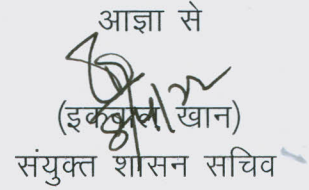 आज्ञा से
(इकबाल खान)
संयुक्त शासन सचिव